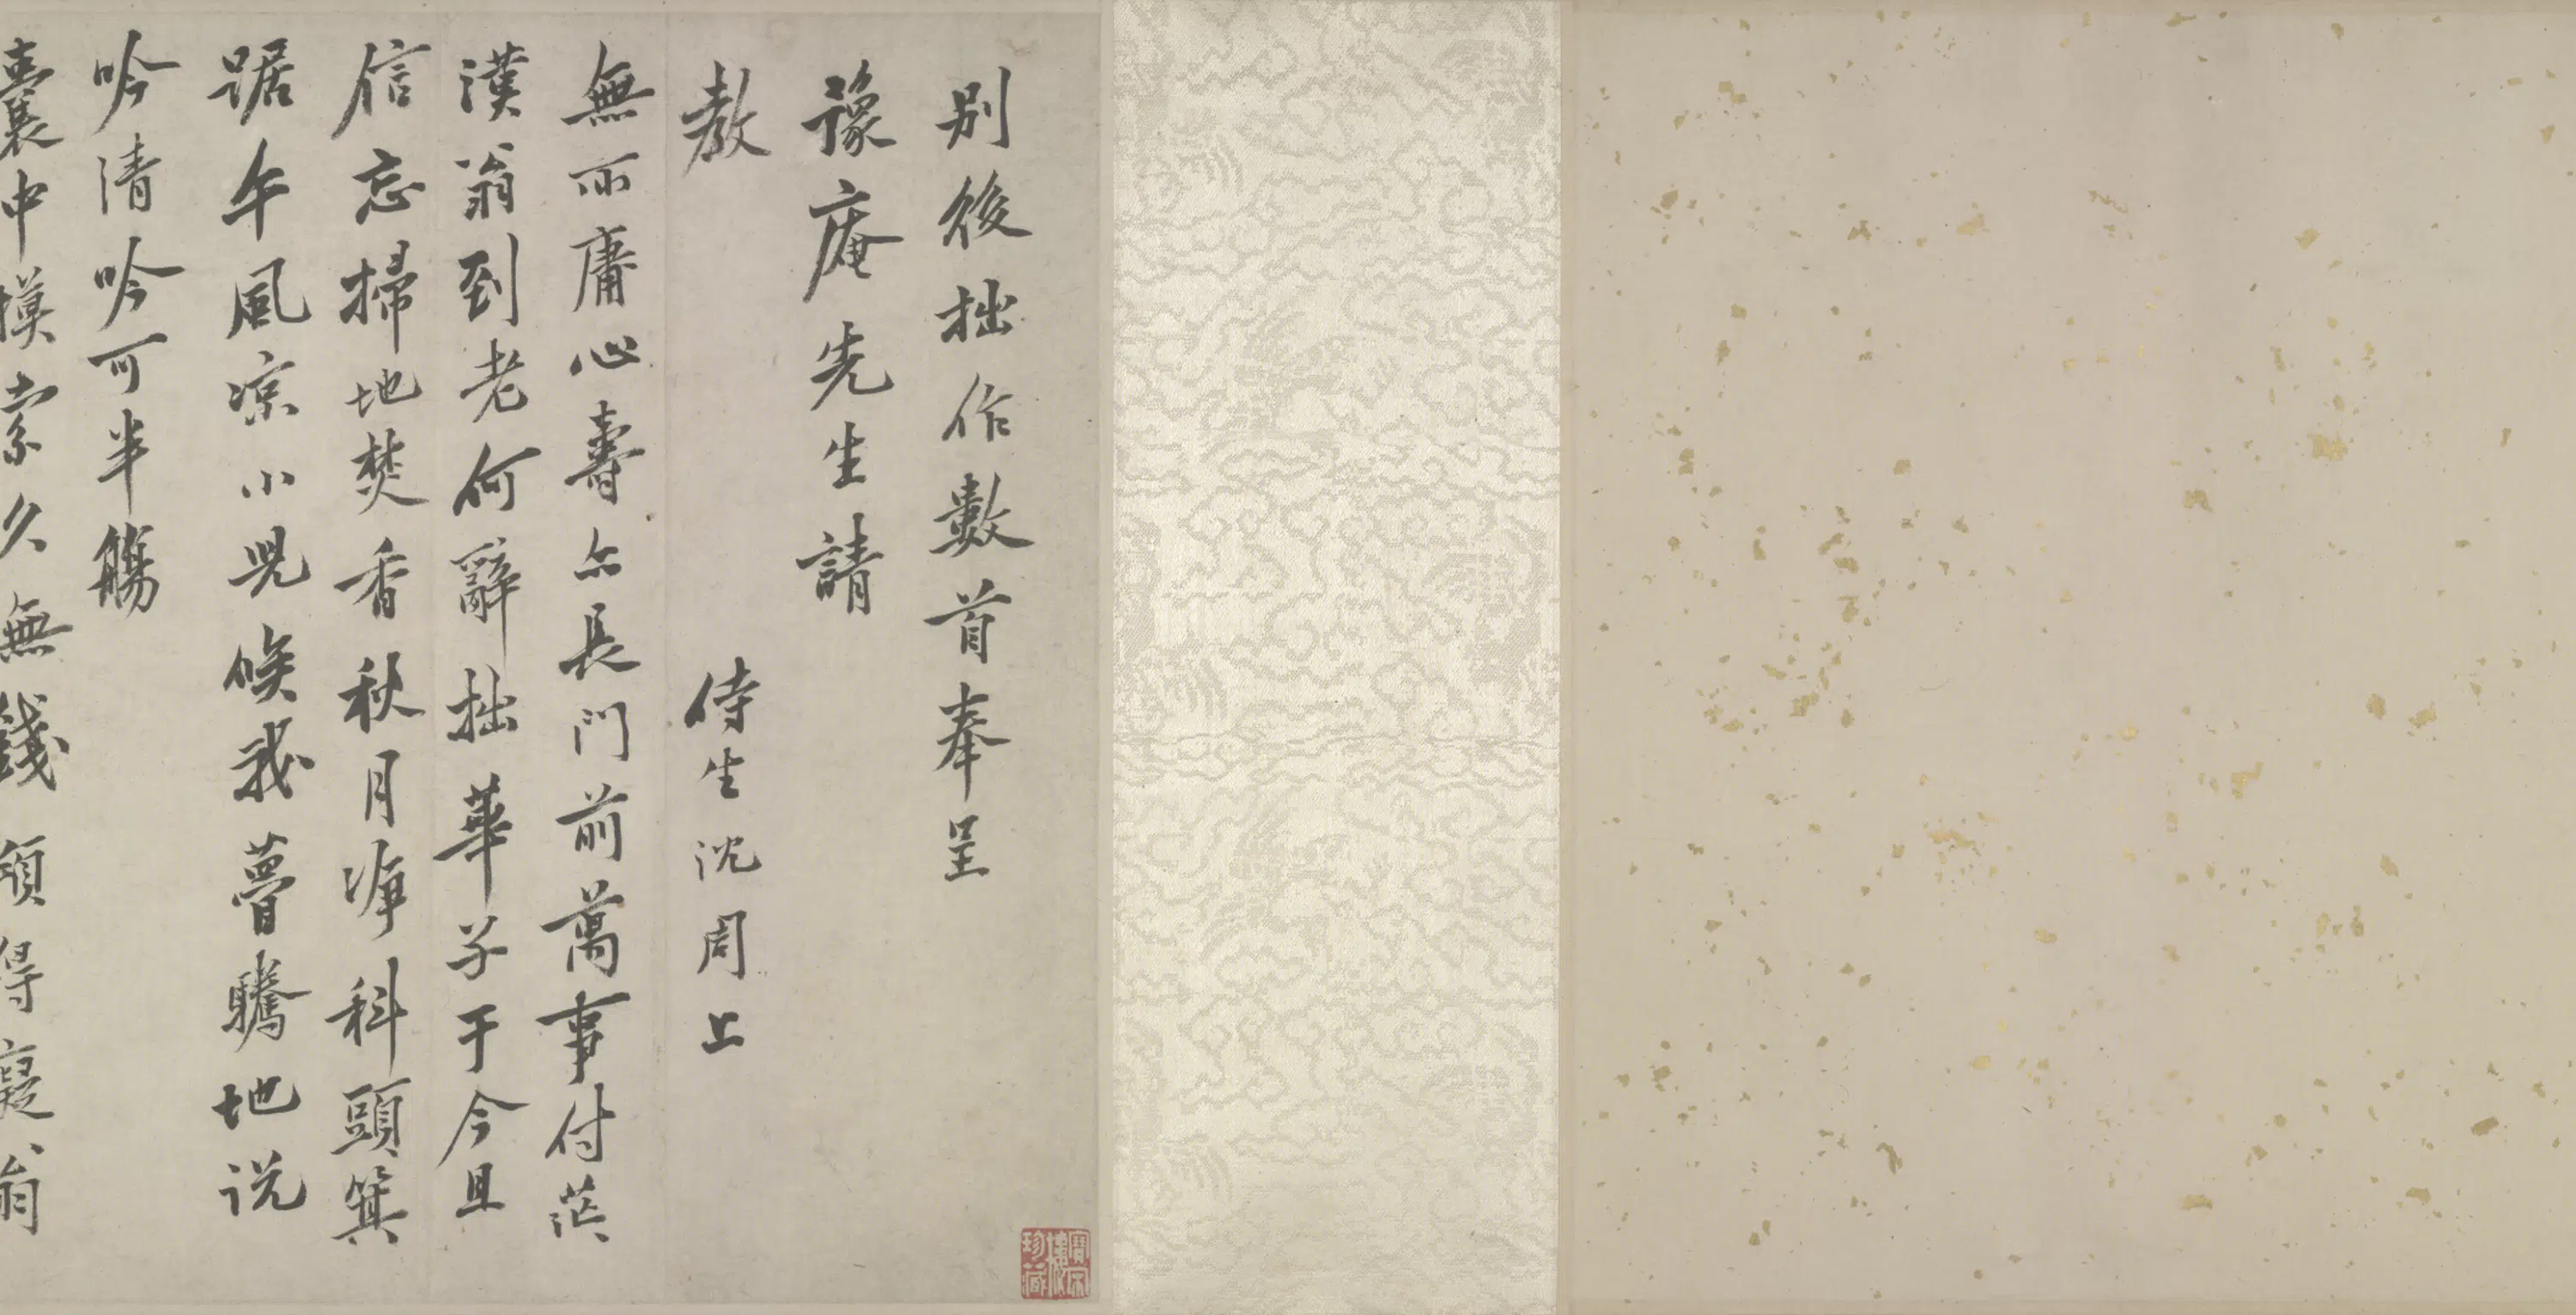 別後拙作數首奉呈
豫庵先生請
教
侍生沈周上
無所庸心壽亦長門前萬事付茫
漢翁到老何辭拙華子于今且
信忘掃地焚香秋月淨科頭箕
踞午風凉小兒候我蕾騰地説
吟清吟可半觴
囊中摸索久無錢頭得寔翁
珍藏